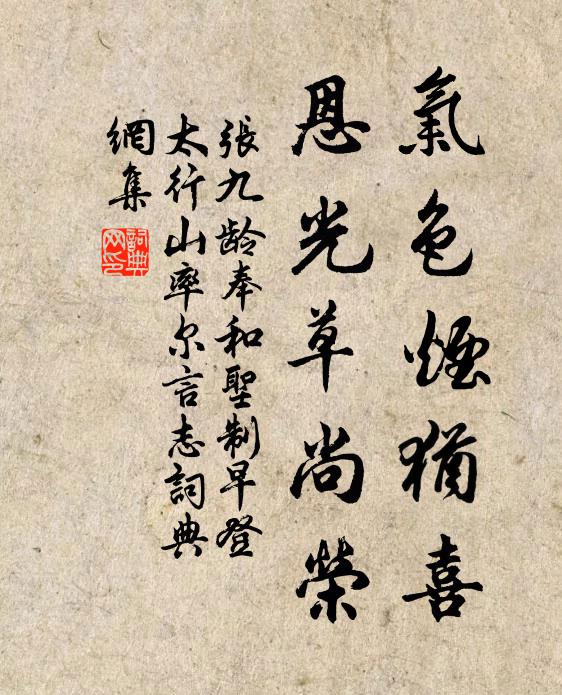 氣色煙猶喜
恩光草尚榮
張九龄奉和聖制早登
太行山率尔言志詞典
網集
詞典
网印